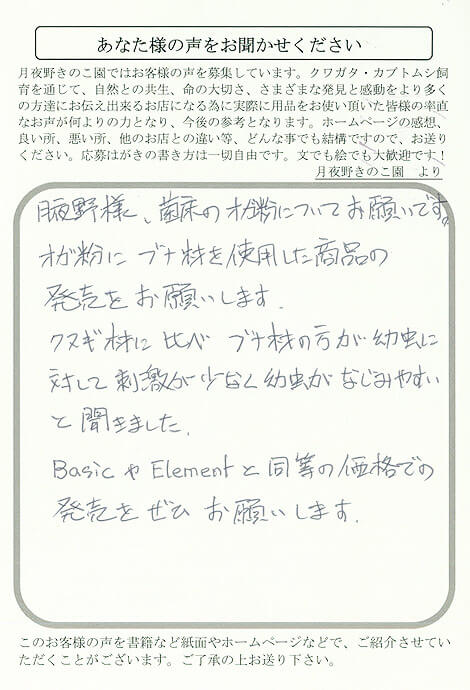 あなた様の声をお聞かせください
月夜野きのこ園ではお客様の声を募集しています。クワガタ・カブトムシ飼
育を通じて、自然との共生、命の大切さ、さまざまな発見と感動をより多く
の方達にお伝え出来るお店になる為に実際に用品をお使い頂いた皆様の率直
なお声が何よりの力となり、今後の参考となります。ホームページの感想、
良い所、悪い所、他のお店との違い等、どんな事でも結構ですので、お送り
ください。応募はがきの書き方は一切自由です。文でも絵でも大歓迎です！
月夜野きのこ園　より
月夜野様、菌床のオガ粉についてお願いです。
オガ粉にブナ材を使用した商品の
発売をお願いします．
クヌギ材に比べ ブナ材の方が幼虫に
対して刺激が少なく幼虫がなじみやすい
と聞きました．
Basic や Element と同等の価格での
発売をぜひ お願いします．
このお客様の声を書籍など紙面やホームページなどで、ご紹介させてい
ただくことがございます。ご了承の上お送り下さい。